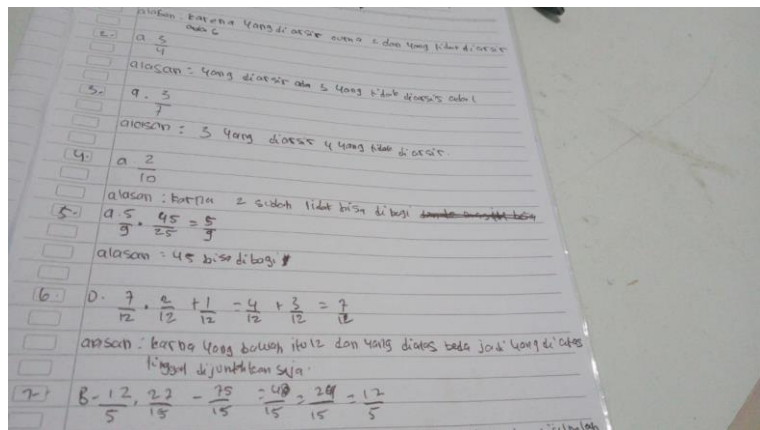 alasan: karena yang diarsir cuma 2 dan yang tidak diarsir
ada 6
2. a. 3/4
alasan = yang diarsir ada 3 yang tidak diarsir ada 1
3. a. 3/7
alasan : 3 yang diarsir 4 yang tidak diarsir.
4. a 2/10
alasan : karna 2 sudah tidak bisa di bagi
5. a. 5/9 . 45/25 = 5/9
alasan = 45 bisa dibagi
6. D. 7/12 . 2/12 + 1/12 = 4/12 + 3/12 = 7/12
alasan : karna yang bawah itu 12 dan yang diatas beda jadi yang di atas
tinggal dijumlahkan saja.
7. B - 12/5 . 27/15 - 75/15 = 48/15 = 24/15 = 12/5